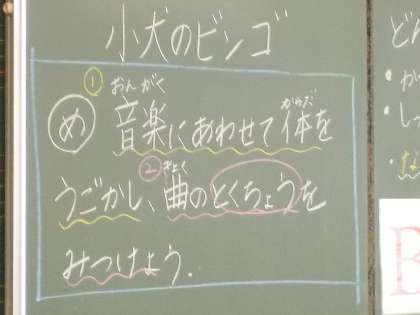 小犬のビンゴ
め ①音楽にあわせて体を
おんがく からだ
うごかし、②曲のとくちょうを
きょく
みつけよう.
どん
B